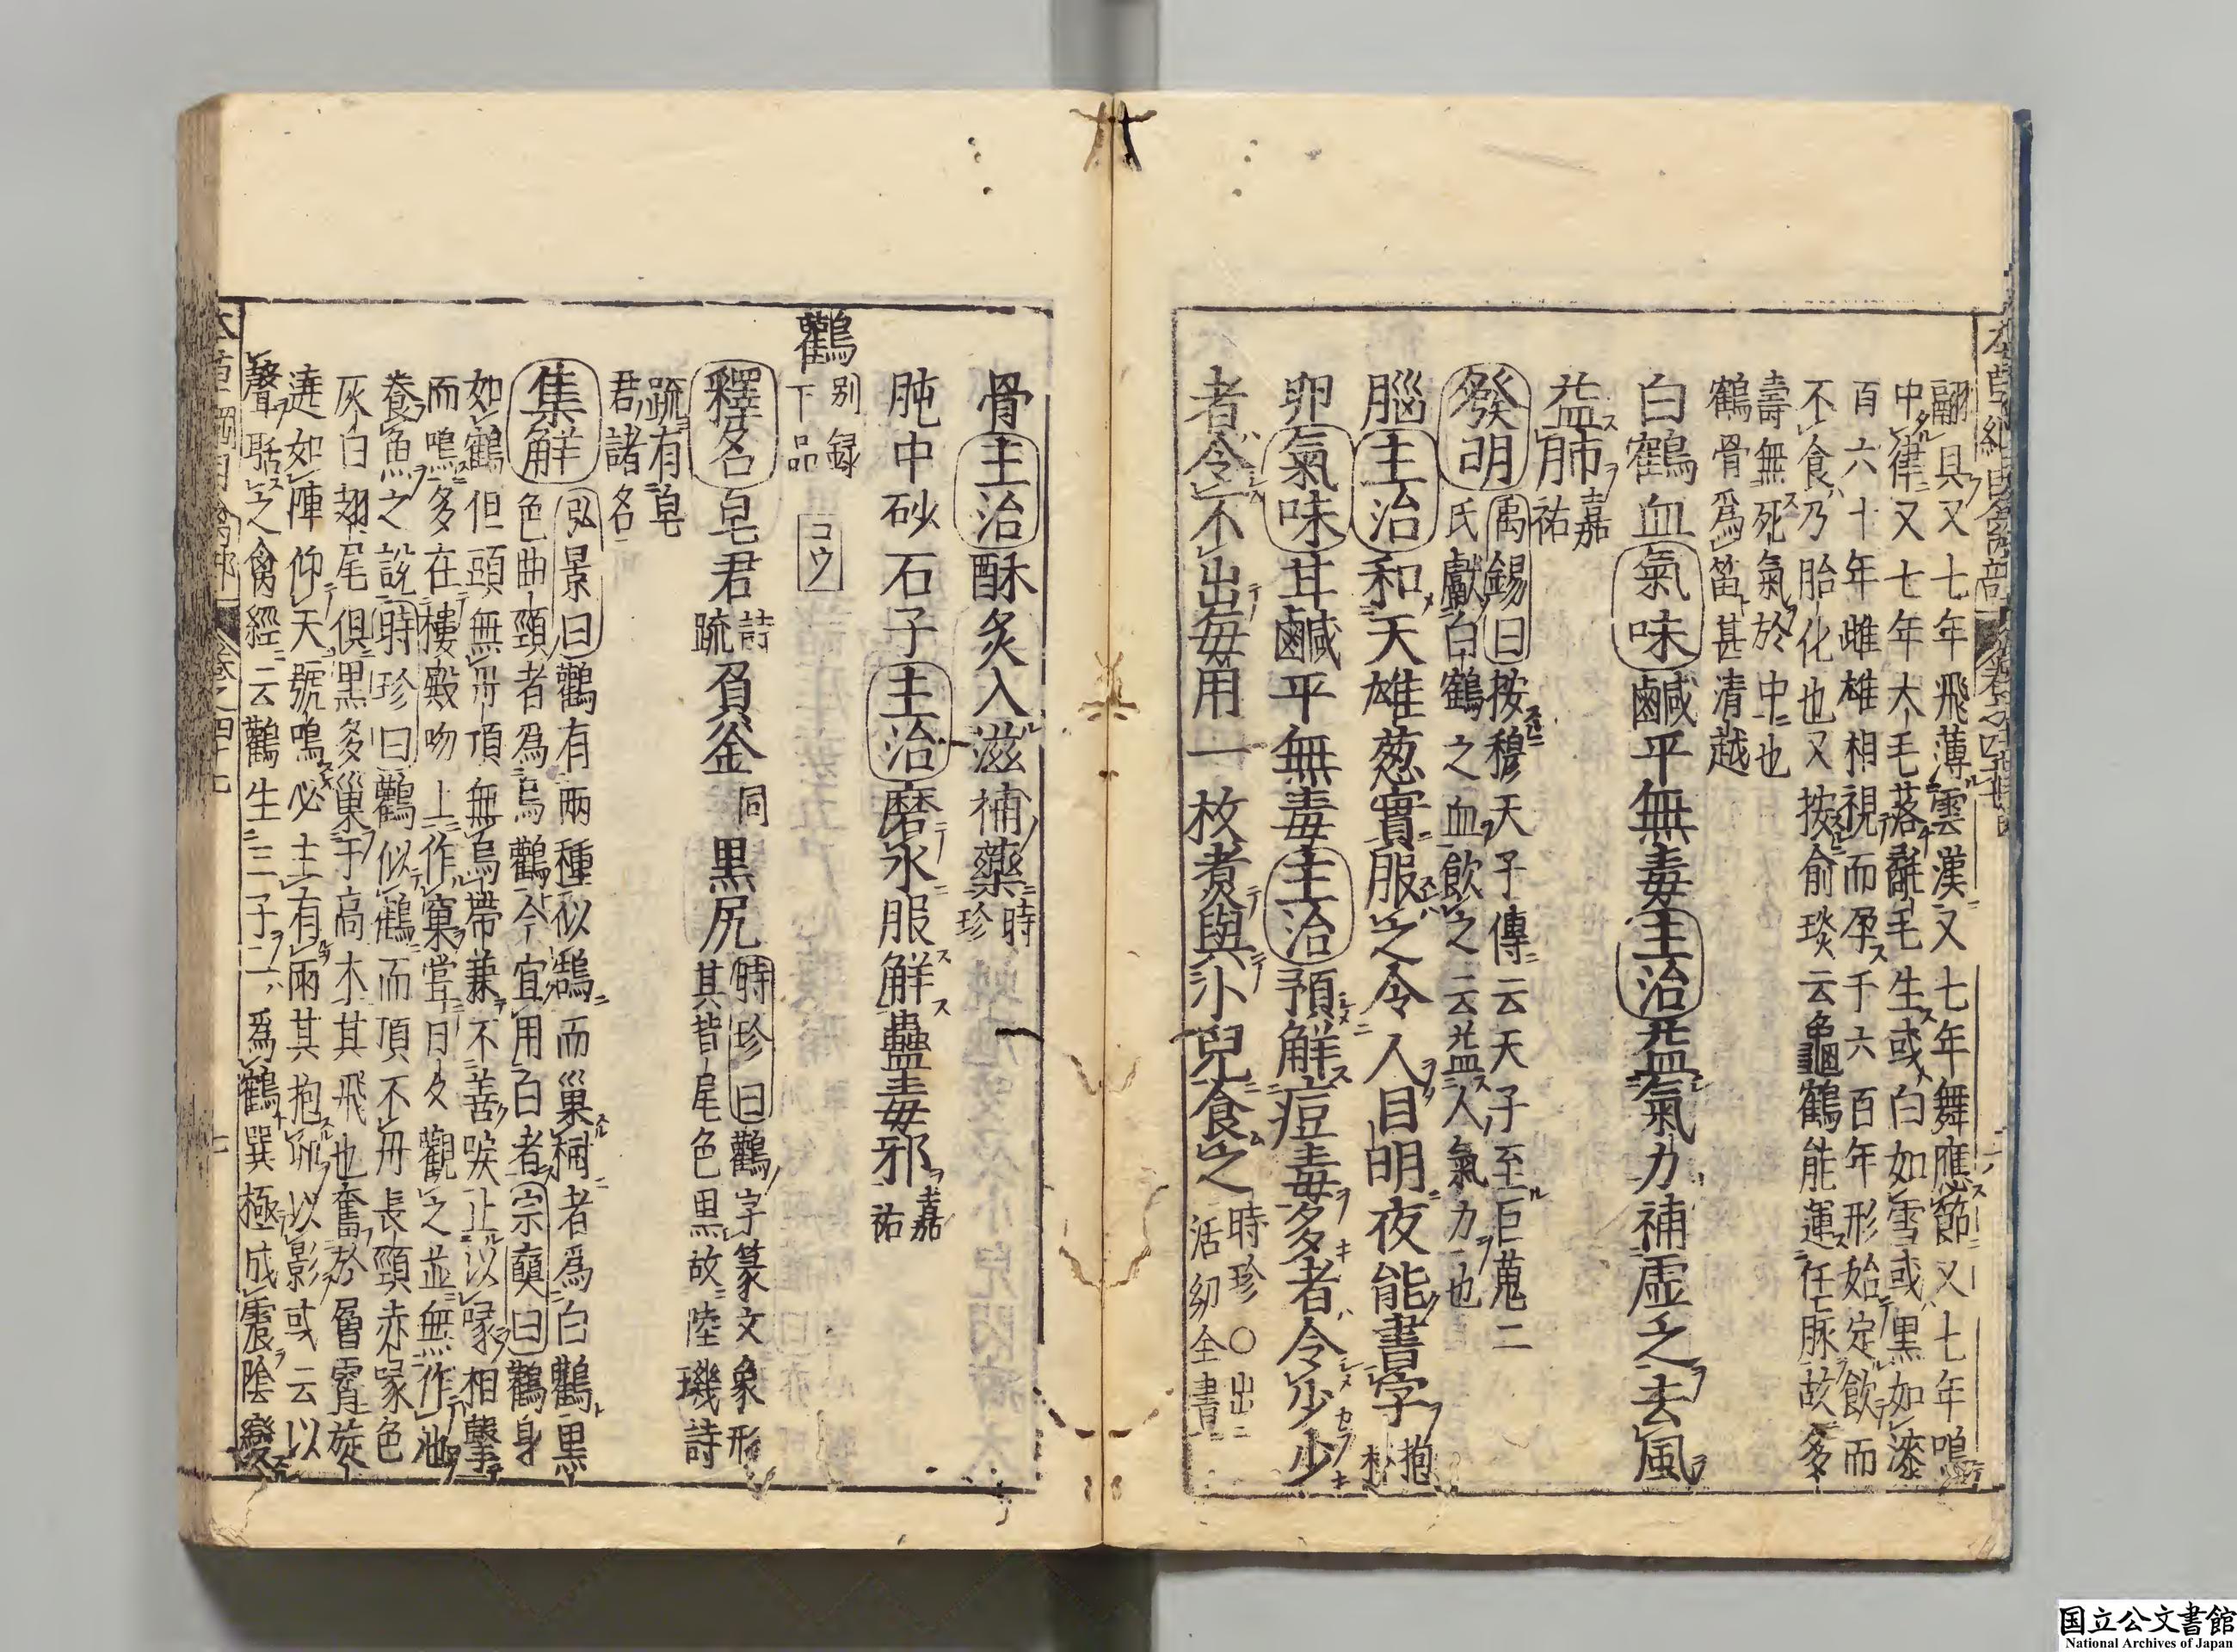 翮具又七年飛薄雲漢又七年舞應節又七年鳴
中律又七年大毛落氄毛生或白如雪或黒如漆
百六十年雌雄相視而孕千六百年形始定飲而
不食乃胎化也又按俞琰云龜鶴能運任脉故多
壽無死氣於中也
鶴骨爲笛甚清越
白鶴血氣味鹹平無毒主治益氣力補虚乏去風
益肺嘉祐
發明禹錫曰按穆天子傳云天子至巨蒐二
氏獻白鶴之血飲之云益人氣力也
腦主治和天雄葱實服之令人目明夜能書字抱朴
卵氣味甘鹹平無毒主治預解痘毒多者令少少
者令不出毎用一枚煮與小兒食之時珍〇出
活幼全書
骨主治酥炙入滋補藥時珍
肫中砂石子主治磨水服解蠱毒邪嘉祐
鸛別録下品コウ
釋名皂君詩疏負釡同黒尻時珍曰鸛字篆文象形
其背尾色黒故陸璣詩
疏有皂
君諸名
集解弘景曰鸛有兩種似鵠而巢樹者爲白鸛黒
色曲頸者爲烏鸛今宜用白者宗奭曰鸛身
如鶴但頭無丹項無烏帶兼不善唳止以喙相擊
而鳴多在樓殿吻上作窠嘗日夕觀之並無作池
養魚之說時珍曰鸛似鶴而頂不丹長頸赤喙色
灰白翅尾倶黒多巢于高木其飛也奮於層霄旋
遶如陣仰天號鳴必主有雨其抱卵以影或云以
聲聒之禽經云鸛生三子一爲鶴巽極成震陰變
国立公文書館
National Archives of Japan